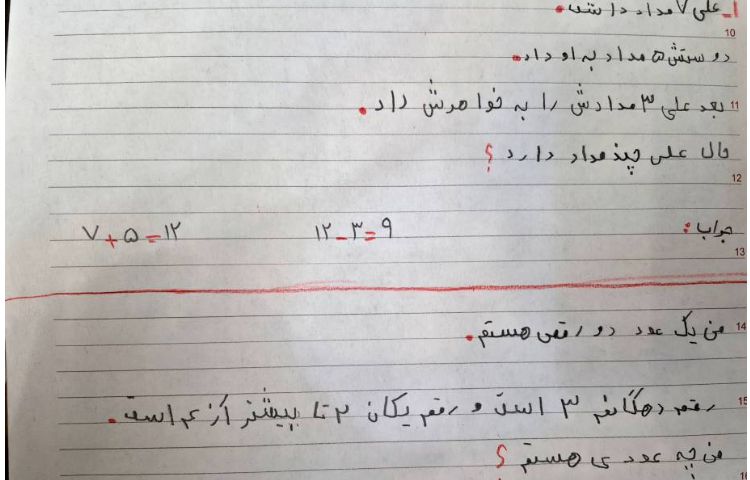 ۱_ علی ۷ مداد داشت.
10
دوستش ۵ مداد به او داد.
11 بعد علی ۳ مدادش را به خواهرش داد.
حال علی چند مداد دارد؟
12
جواب: ۱۲-۳=۹ ۷+۵=۱۲
13
14 من یک عدد دو رقمی هستم.
15 رقم دهگانم ۳ است و رقم یکان ۲ تا بیشتر از ۴ است.
من چه عددی هستم؟
16